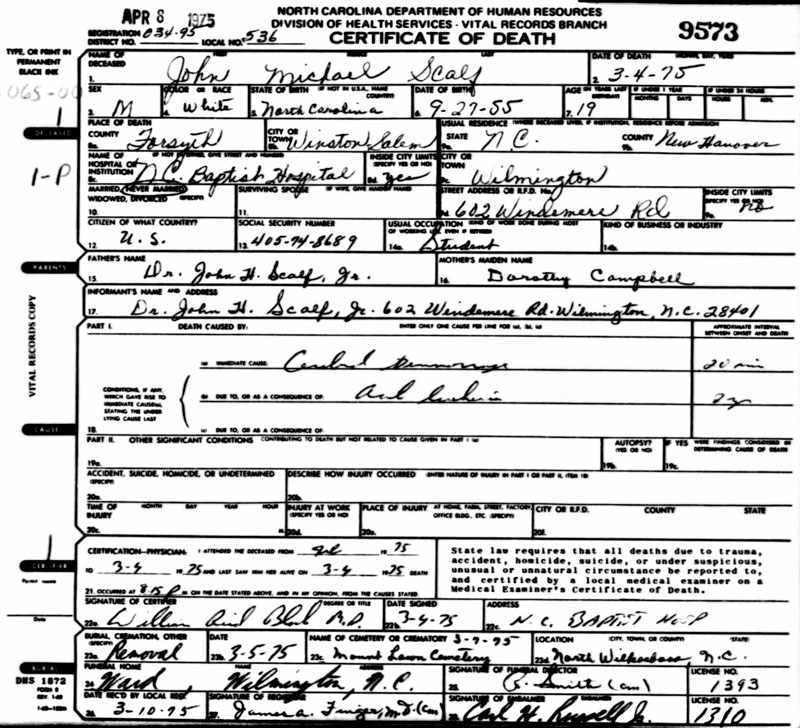 APR 8 1975
NORTH CAROLINA DEPARTMENT OF HUMAN RESOURCES
DIVISION OF HEALTH SERVICES - VITAL RECORDS BRANCH
CERTIFICATE OF DEATH
9573
REGISTRATION DISTRICT NO. 034-95 LOCAL NO. 536
TYPE, OR PRINT IN PERMANENT BLACK INK
NAME OF DECEASED
1. John Michael Scalf
DATE OF DEATH (MONTH, DAY, YEAR)
2. 3-4-75
SEX
3. M
COLOR OR RACE
4. White
STATE OF BIRTH (IF NOT IN U.S.A., NAME COUNTRY)
5. North Carolina
DATE OF BIRTH
6. 9-27-55
AGE (IN YEARS LAST BIRTHDAY)
7. 19
IF UNDER 1 YEAR
MONTHS DAYS
IF UNDER 24 HOURS
HOURS MIN.
DECEASED
1-P
PLACE OF DEATH
COUNTY
8a. Forsyth
CITY OR TOWN
8b. Winston Salem
USUAL RESIDENCE (WHERE DECEASED LIVED, IF INSTITUTION, RESIDENCE BEFORE ADMISSION)
STATE
9a. N.C.
COUNTY
9b. New Hanover
NAME OF HOSPITAL OR INSTITUTION (IF NOT EITHER, GIVE STREET AND NUMBER)
8c. N.C. Baptist Hospital
INSIDE CITY LIMITS (SPECIFY YES OR NO)
8d. yes
CITY OR TOWN
9c. Wilmington
MARRIED, NEVER MARRIED, WIDOWED, DIVORCED (SPECIFY)
10.
SURVIVING SPOUSE (IF WIFE, GIVE MAIDEN NAME)
11.
STREET ADDRESS OR R.F.D. No.
602 Windemere Rd
INSIDE CITY LIMITS (SPECIFY YES OR NO)
No
CITIZEN OF WHAT COUNTRY?
12. U.S.
SOCIAL SECURITY NUMBER
13. 405-74-8689
USUAL OCCUPATION (KIND OF WORK DONE DURING MOST OF WORKING LIFE, EVEN IF RETIRED)
14a. Student
KIND OF BUSINESS OR INDUSTRY
14b.
PARENTS
FATHER'S NAME
15. Dr. John H. Scalf, Jr.
MOTHER'S MAIDEN NAME
16. Dorothy Campbell
INFORMANT'S NAME AND ADDRESS
17. Dr. John H. Scalf, Jr. 602 Windemere Rd. Wilmington, N.C. 28401
VITAL RECORDS COPY
PART I. DEATH CAUSED BY: ENTER ONLY ONE CAUSE PER LINE FOR (a), (b), (c)
APPROXIMATE INTERVAL BETWEEN ONSET AND DEATH
(a) IMMEDIATE CAUSE: Cerebral
20 min
CONDITIONS, IF ANY, WHICH GAVE RISE TO IMMEDIATE CAUSE(a), STATING THE UNDERLYING CAUSE LAST
(b) DUE TO, OR AS A CONSEQUENCE OF:
(c) DUE TO, OR AS A CONSEQUENCE OF:
18.
CAUSE
PART II. OTHER SIGNIFICANT CONDITIONS CONTRIBUTING TO DEATH BUT NOT RELATED TO CAUSE GIVEN IN PART I (a)
19a.
AUTOPSY? (YES OR NO)
19b.
IF YES WERE FINDINGS CONSIDERED IN DETERMINING CAUSE OF DEATH
19c.
ACCIDENT, SUICIDE, HOMICIDE, OR UNDETERMINED (SPECIFY)
20a.
DESCRIBE HOW INJURY OCCURRED (ENTER NATURE OF INJURY IN PART I OR PART II, ITEM 18)
20b.
TIME OF INJURY MONTH DAY YEAR HOUR
20c.
INJURY AT WORK (SPECIFY YES OR NO)
20d.
PLACE OF INJURY AT HOME, FARM, STREET, FACTORY, OFFICE BLDG., ETC. (SPECIFY)
20e.
CITY OR R.F.D. COUNTY STATE
20f.
CERTIFIER
CERTIFICATION-PHYSICIAN: I ATTENDED THE DECEASED FROM 1975
TO 3-4 1975 AND LAST SAW HIM HER ALIVE ON 3-4 1975 DEATH
21. OCCURRED AT 8:15 P M ON THE DATE STATED ABOVE, AND IN MY OPINION, FROM THE CAUSES STATED.
State law requires that all deaths due to trauma,
accident, homicide, suicide, or under suspicious,
unusual or unnatural circumstance be reported to,
and certified by a local medical examiner on a
Medical Examiner's Certificate of Death.
SIGNATURE OF CERTIFIER DEGREE OR TITLE
22a. M.D.
DATE SIGNED
22b. 3-4-75
22c. N.C. BAPTIST HOSP
Date
BURIAL, CREMATION, OTHER (SPECIFY)
23a. Removal
DATE
23b. 3-5-75
NAME OF CEMETERY OR CREMATORY 3-7-75
23c. Mount Lawn Cemetery
LOCATION (CITY, TOWN, OR COUNTY) (STATE)
23d. North Wilkesboro, N.C.
BURIAL
DHS 1872
FUNERAL HOME
24. Ward Wilmington, N.C.
SIGNATURE OF FUNERAL DIRECTOR
25. Smith
LICENSE NO.
1393
DATE REC'D BY LOCAL REG.
26. 3-10-75
SIGNATURE OF REGISTRAR
27. James A. Finger, M.D.
SIGNATURE OF EMBALMER
Carl H. Russell Jr.
LICENSE NO.
1310